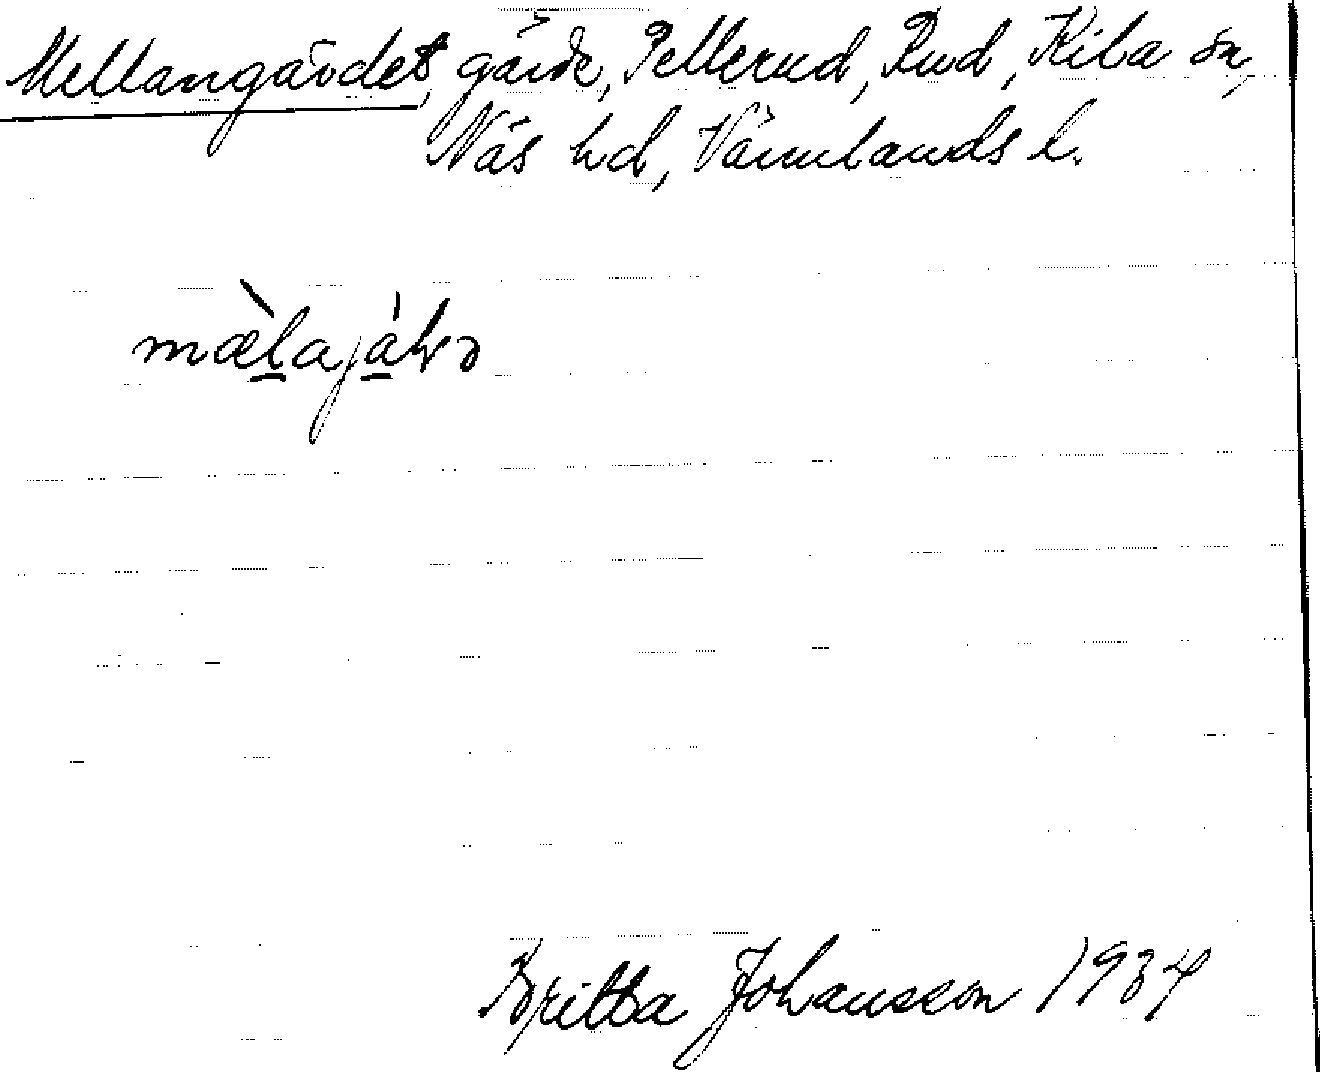 Mellangärdet, gärde, Pellerud, Rud, Kila sn,
Näs hd, Värmlands l.
mæ̀lajáɫɔ
Britta Johansson 1934